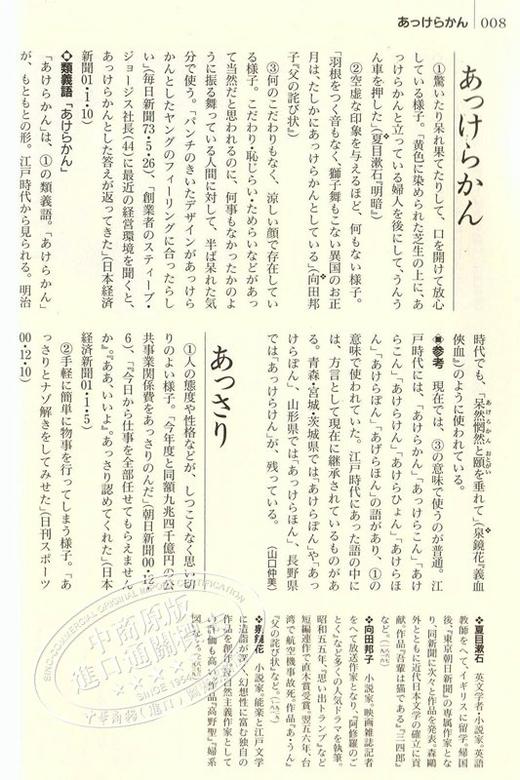 あっけらかん 008
あっけらかん
①驚いたり呆れ果てたりして、口を開けて放心
している様子。「黄色に染められた芝生の上に、あ
っけらかんと立っている婦人を後にして、うんう
ん車を押した」(夏目漱石『明暗』)
②空虚な印象を与えるほど、何もない様子。
「羽根をつく音もなく、獅子舞もこない異国のお正
月は、たしかにあっけらかんとしている」(向田邦
子『父の詫び状』)
③何のこだわりもなく、涼しい顔で存在してい
る様子。こだわり・恥じらい・ためらいなどがあっ
て当然だと思われるのに、何事もなかったかのよ
うに振る舞っている人間に対して、半ば呆れた気
分で使う。「パンチのきいたデザインがあっけら
かんとしたヤングのフィーリングに合ったらし
い」(毎日新聞73・5・26)、「創業者のスティーブ・
ジョージス社長(44)に最近の経営環境を聞くと、
あっけらかんとした答えが返ってきた」(日本経済
新聞01・1・10)
■類義語「あけらかん」
「あけらかん」は、①の類義語。「あけらかん」
が、もともとの形。江戸時代から見られる。明治
時代でも、「呆然惘然と頤を垂れて」(泉鏡花『義血
侠血』)のように使われている。
■参考 現在では、③の意味で使うのが普通。江
戸時代には、「あけらかん」「あっけらこん」「あけ
らこん」「あけらけん」「あけらひょん」「あけらほ
ん」「あけらぽん」「あげらほん」の語があり、①の
意味で使われていた。江戸時代にあった語の中に
は、方言として現在に継承されているものがあ
る。青森・宮城・茨城県では「あけらぽん」や「あっ
けらぽん」、山形県では「あっけらほん」、長野県
では「あっけらけん」が、残っている。
(山口仲美)
あっさり
①人の態度や性格などが、しつこくなく思い切
りのよい様子。「今年度と同額九兆四千億円の公
共事業関係費をあっさりのんだ」(朝日新聞00・12・
6)、「『今日から仕事を全部任せてもらえません
か』。『ああ、いいよ』。あっさり認めてくれた」(日本
経済新聞01・1・5)
②手軽に簡単に物事を行ってしまう様子。「あ
っさりとナゾ解きをしてみせた」(日刊スポーツ
00・12・10)
❖夏目漱石 英文学者・小説家。英語
教師をへて、イギリスに留学。帰国
後、『東京朝日新聞』の専属作家とな
り、同新聞に次々と作品を発表。森鷗
外とともに近代日本文学の確立に貢
献。作品『吾輩は猫である』『三四郎』
など。
❖向田邦子 小説家。映画雑誌記者
をへて放送作家となり、『阿修羅のご
とく』など多くの人気ドラマを執筆。
昭和五五年、『思い出トランプ』など
短編連作で直木賞受賞。翌五六年、台
湾で航空機事故死。作品『あ・うん』
『父の詫び状』など。
❖泉鏡花 小説家。能楽と江戸文学
に造詣が深く、幻想性に富む独自の
作品を創作。
作品『高野聖』『婦系
図』
中商原版
進口圖書